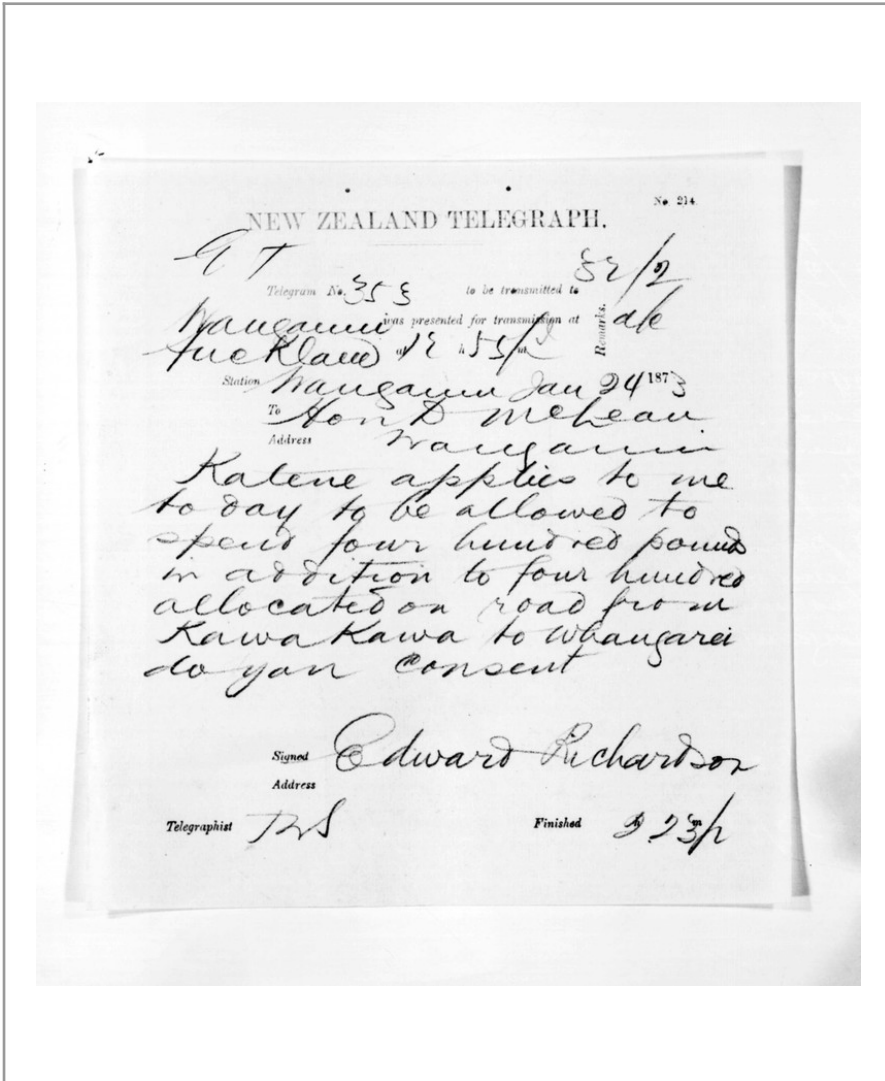 No. 214.
NEW ZEALAND TELEGRAPH.
G T
Telegram No. 353 to be transmitted to
Wanganui was presented for transmission at
Remarks.
Auckland at 12 h 55 m
Station Wanganui Jan 24 1873
To Hon D McLean
Address Wanganui
Katene applies to me
to day to be allowed to
spend four hundred pounds
in addition to four hundred
allocated on road from
Kawa Kawa to Whangarei
do you consent
Signed Edward Richardson
Address
Telegraphist
Finished